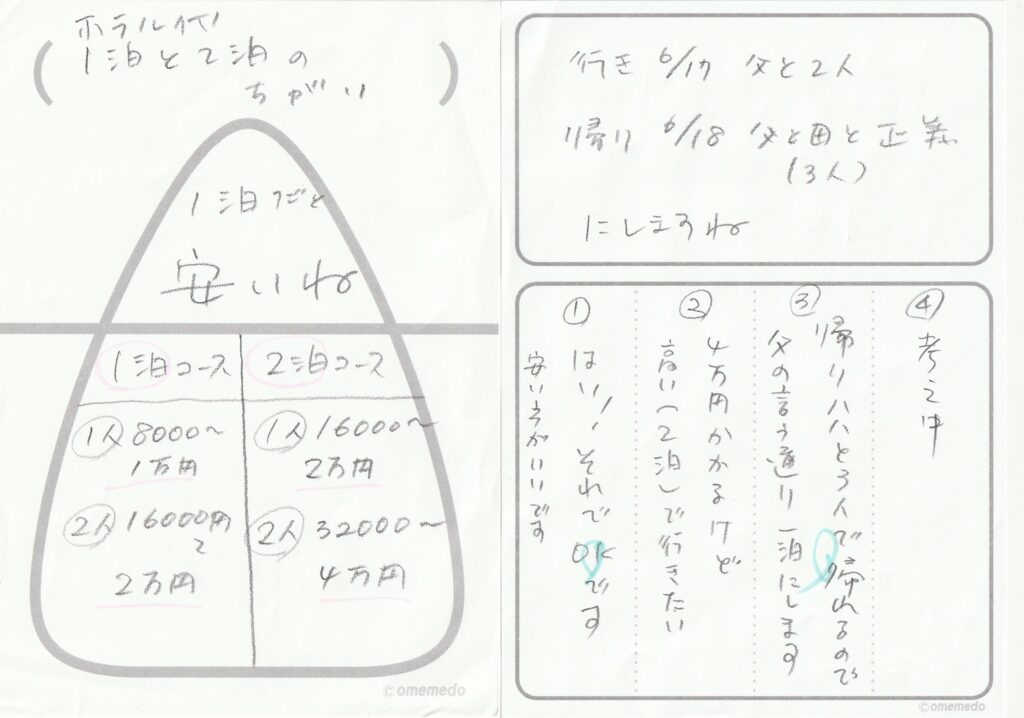 ホテル代
1泊と2泊の
ちがい
1泊だと
安いね
1泊コース
2泊コース
1人 8000〜
1万円
1人 16000〜
2万円
2人 16000円
〜
2万円
2人 32000〜
4万円
©omemedo
行き 6/17 父と2人
帰り 6/18 父と母と正義
(3人)
にしますね
①
はい!それでOKです
安いうがいいです
②
4万円かかるけど
高い(2泊)で行きたい
③
帰りハハと3人で帰れるので
父の言う通り一泊にします
④
考え中
©omemedo